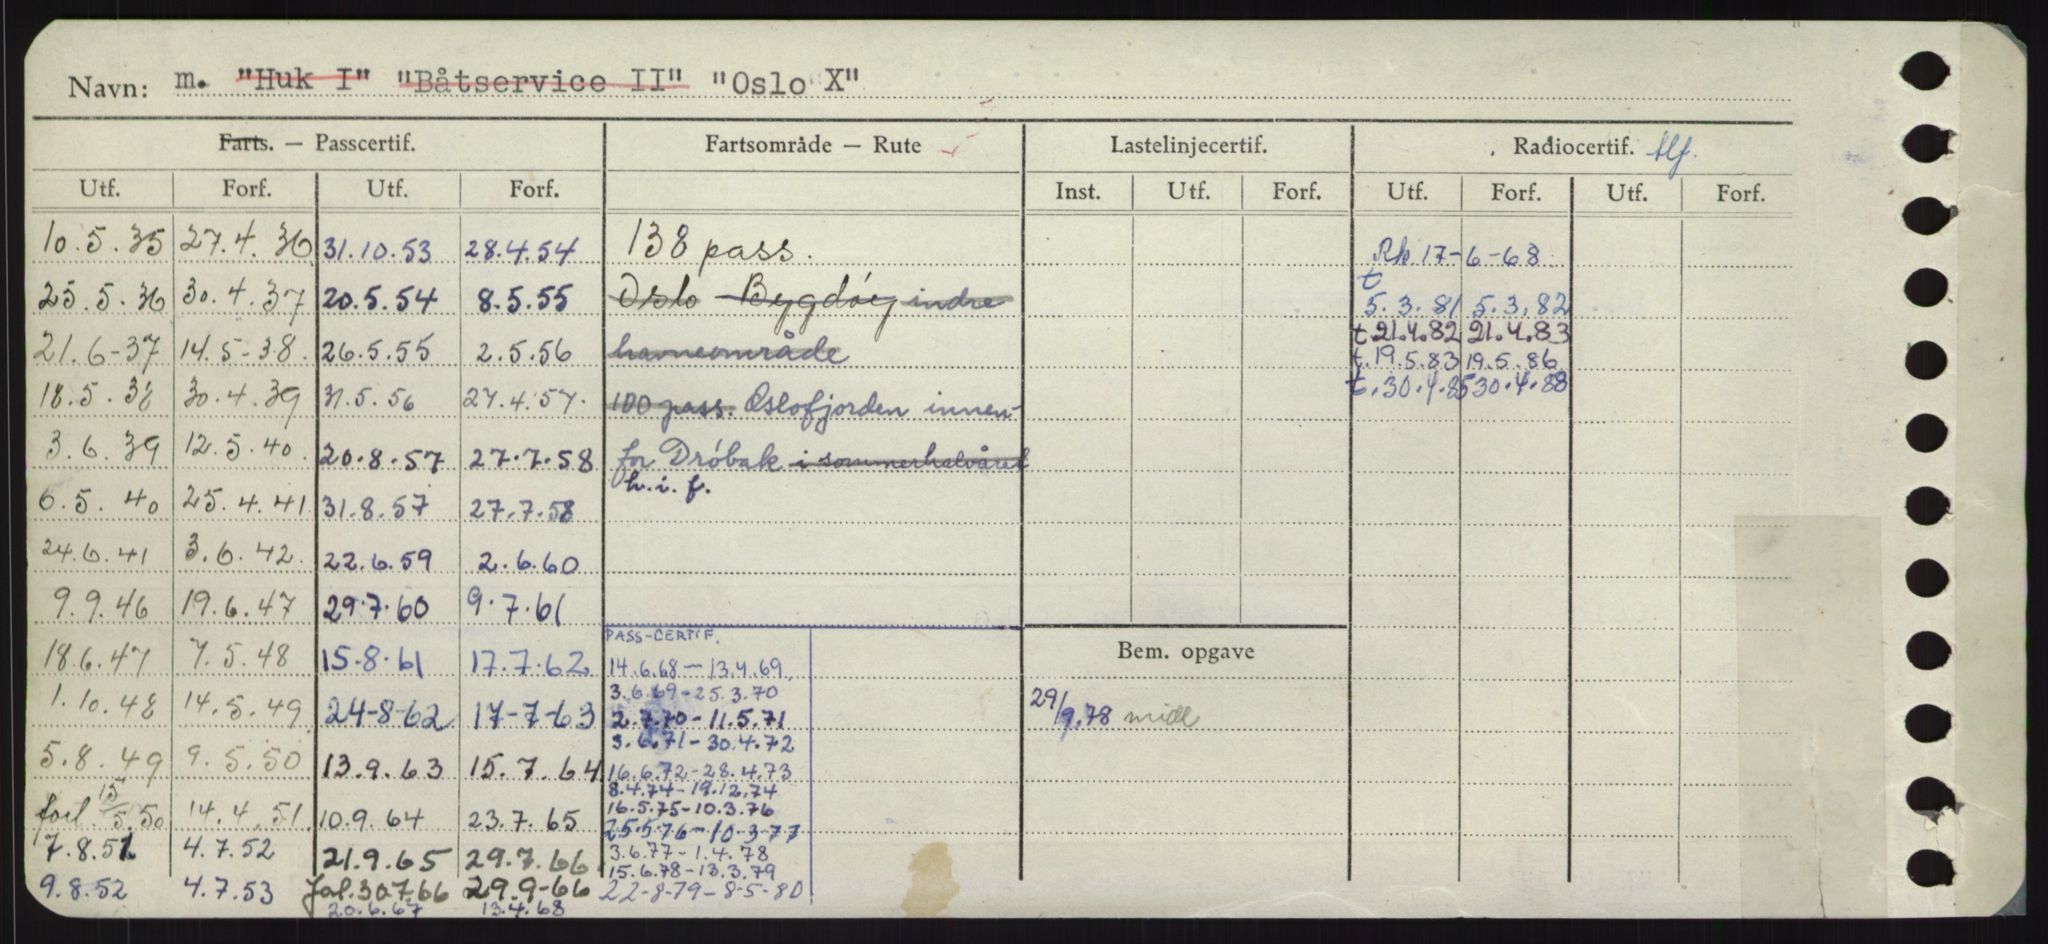 Navn: m. "Huk I" "Båtservice II" "Oslo X"
Farts. — Passcertif. Fartsområde — Rute Lastelinjecertif. Radiocertif. tlf.
Utf. Forf. Utf. Forf. Inst. Utf. Forf. Utf. Forf. Utf. Forf.
10.5.35 27.4.36 31.10.53 28.4.54 138 pass. Rk 17-6-68
25.5.36 30.4.37 20.5.54 8.5.55 Oslo - Bygdöy indre t 5.3.81 5.3.82
t.21.4.82 21.4.83
21.6-37 14.5-38. 26.5.55 2.5.56 havneområde t.19.5.83 19.5.86
18.5.38 30.4.39 31.5.56 27.4.57. 100 pass. Oslofjorden innen- t.30.4.85 30.4.88
3.6.39 12.5.40. 20.8.57 27.7.58 for Dröbak i sommerhalvåret
h.i.f.
6.5.40 25.4.41 31.8.57 27.7.58
24.6.41 3.6.42. 22.6.59 2.6.60
9.9.46 19.6.47 29.7.60 9.7.61
PASS-CERTIF.
18.6.47 7.5.48 15.8.61 17.7.62 14.6.68 — 13.4.69. Bem. opgave
3.6.69 - 25.3.70
1.10.48 14.5.49 24-8-62 17-7-63 2.7.70 - 11.5.71 29/9.78 midl
3.6.71 - 30.4.72
5.8.49 9.5.50 13.9.63 15.7.64 16.6.72 - 28.4.73
8.4.74 - 19.12.74
forl. 15/5.50 14.4.51 10.9.64 23.7.65 16.5.75 - 10.3.76
25.5.76 - 10-3-77
7.8.51 4.7.52 21.9.65 29.7.66 3.6.77 - 1.4.78
15.6.78 - 13.3.79
9.8.52 4.7.53 30.7.66 29.9-66 22-8-79 - 8-5-80
20.6.67 13.4.68